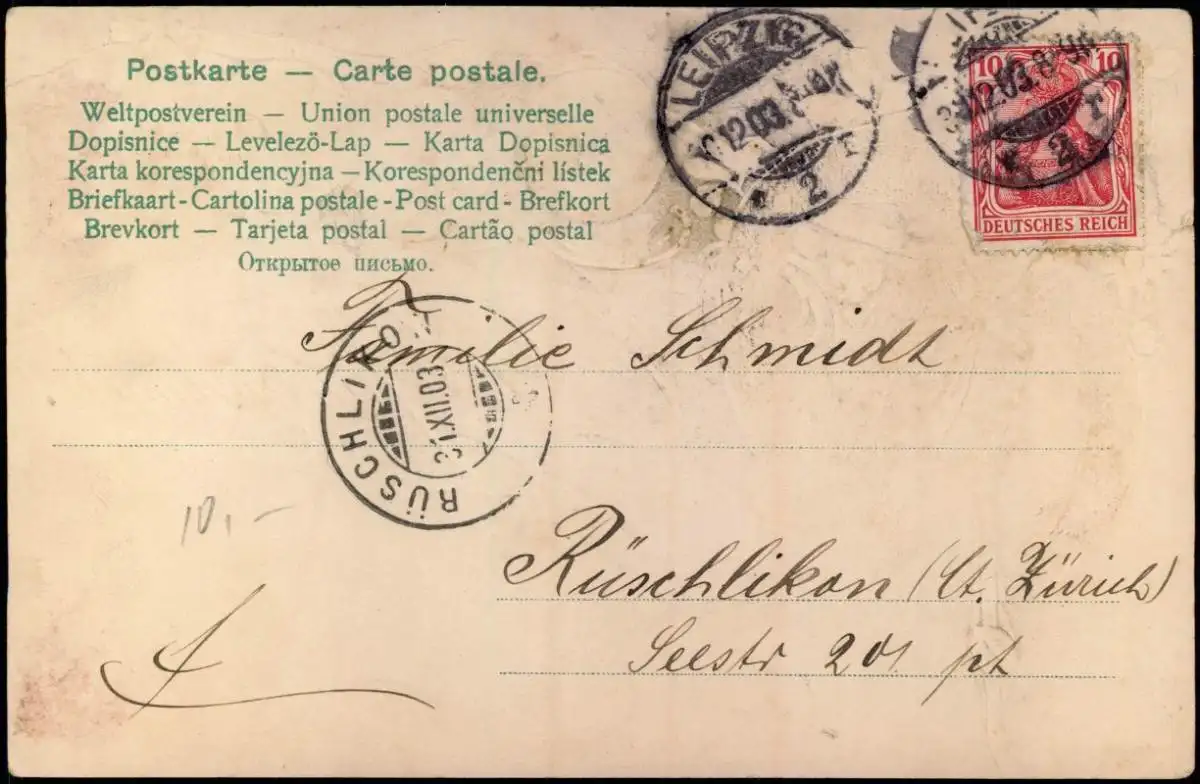 Postkarte — Carte postale.
Weltpostverein — Union postale universelle
Dopisnice — Levelező-Lap — Karta Dopisnica
Karta korespondencyjna — Korespondenční lístek
Briefkaart - Cartolina postale - Post card - Brefkort
Brevkort — Tarjeta postal — Cartão postal
Открытое письмо.
LEIPZIG
12.03.
2
12.03.
2
10 10
DEUTSCHES REICH
Familie Schmidt
RÜSCHLIKON
31.XII.03
10.-
Rüschlikon (Ct. Zürich)
Seestr 201 pt